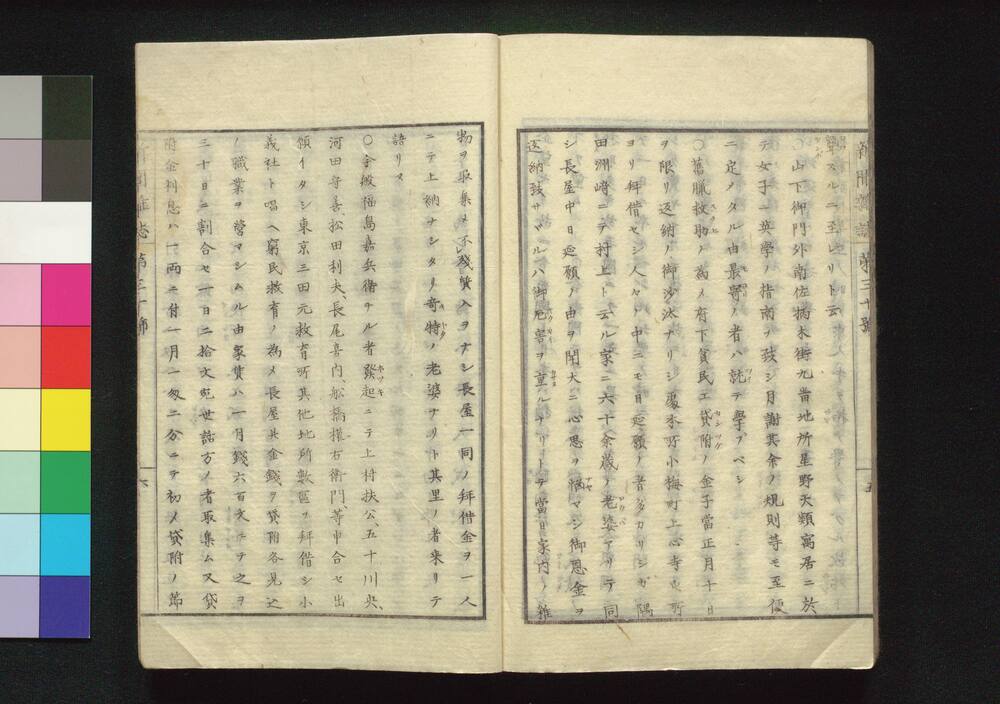 スルニ至レリト云
○山下御門外南佐柄木街九番地所星野天類寓居ニ於
テ女子ニ英學ノ指南ヲ致シ月謝其余ノ規則等モ至便
ニ定メタル由最寄ノ者ハ就テ學ブベシ
○舊臘救助ノ爲メ府下貧民エ貸附ノ金子當正月十日
ヲ限リ返納ノ御沙汰ナリシ處本所小梅町上心寺
ヨリ拜借セシ人々ト中ニモ日延願ノ者多カリシガ隅
田洲崎ニテ村上ト云ル家ニ六十余歳ノ老婆アリテ同
シ長屋中日延願ノ由ヲ聞大ニ心思ヲ惱マシ御恩金ヲ
返納致サヾルハ御危害ヲ重ルナリトテ當日家内ノ雜
物ヲ取集メ不殘質入ヲナシ長屋一同ノ拜借金ヲ一人
ニテ上納ナシタリ奇特ノ老婆ナリト其里ノ者来リテ
語リヌ
○會敏福島嘉兵衛ナル者發起ニテ上村扶公、五十川央、
河田守善、松田利夫、長尾喜内、舩橋權右衛門、等申合セ出
願イタシ東京三田元救育所其他地所數區ヲ拜借シ小
義社ト唱ヘ窮民救育ノ爲メ長屋并金錢ヲ貸附各見込
ノ職業ヲ營マシムル由家賃ハ一月錢六百文ニテ之ヲ
三十日ニ割合セ一日二拾文宛世話方ノ者取集ム又貸
附金利息ハ一兩ニ付一月一匁二分ニテ初メ貸附ノ節
新聞雜誌 第三十號 五
新聞雜誌 第三十號 六